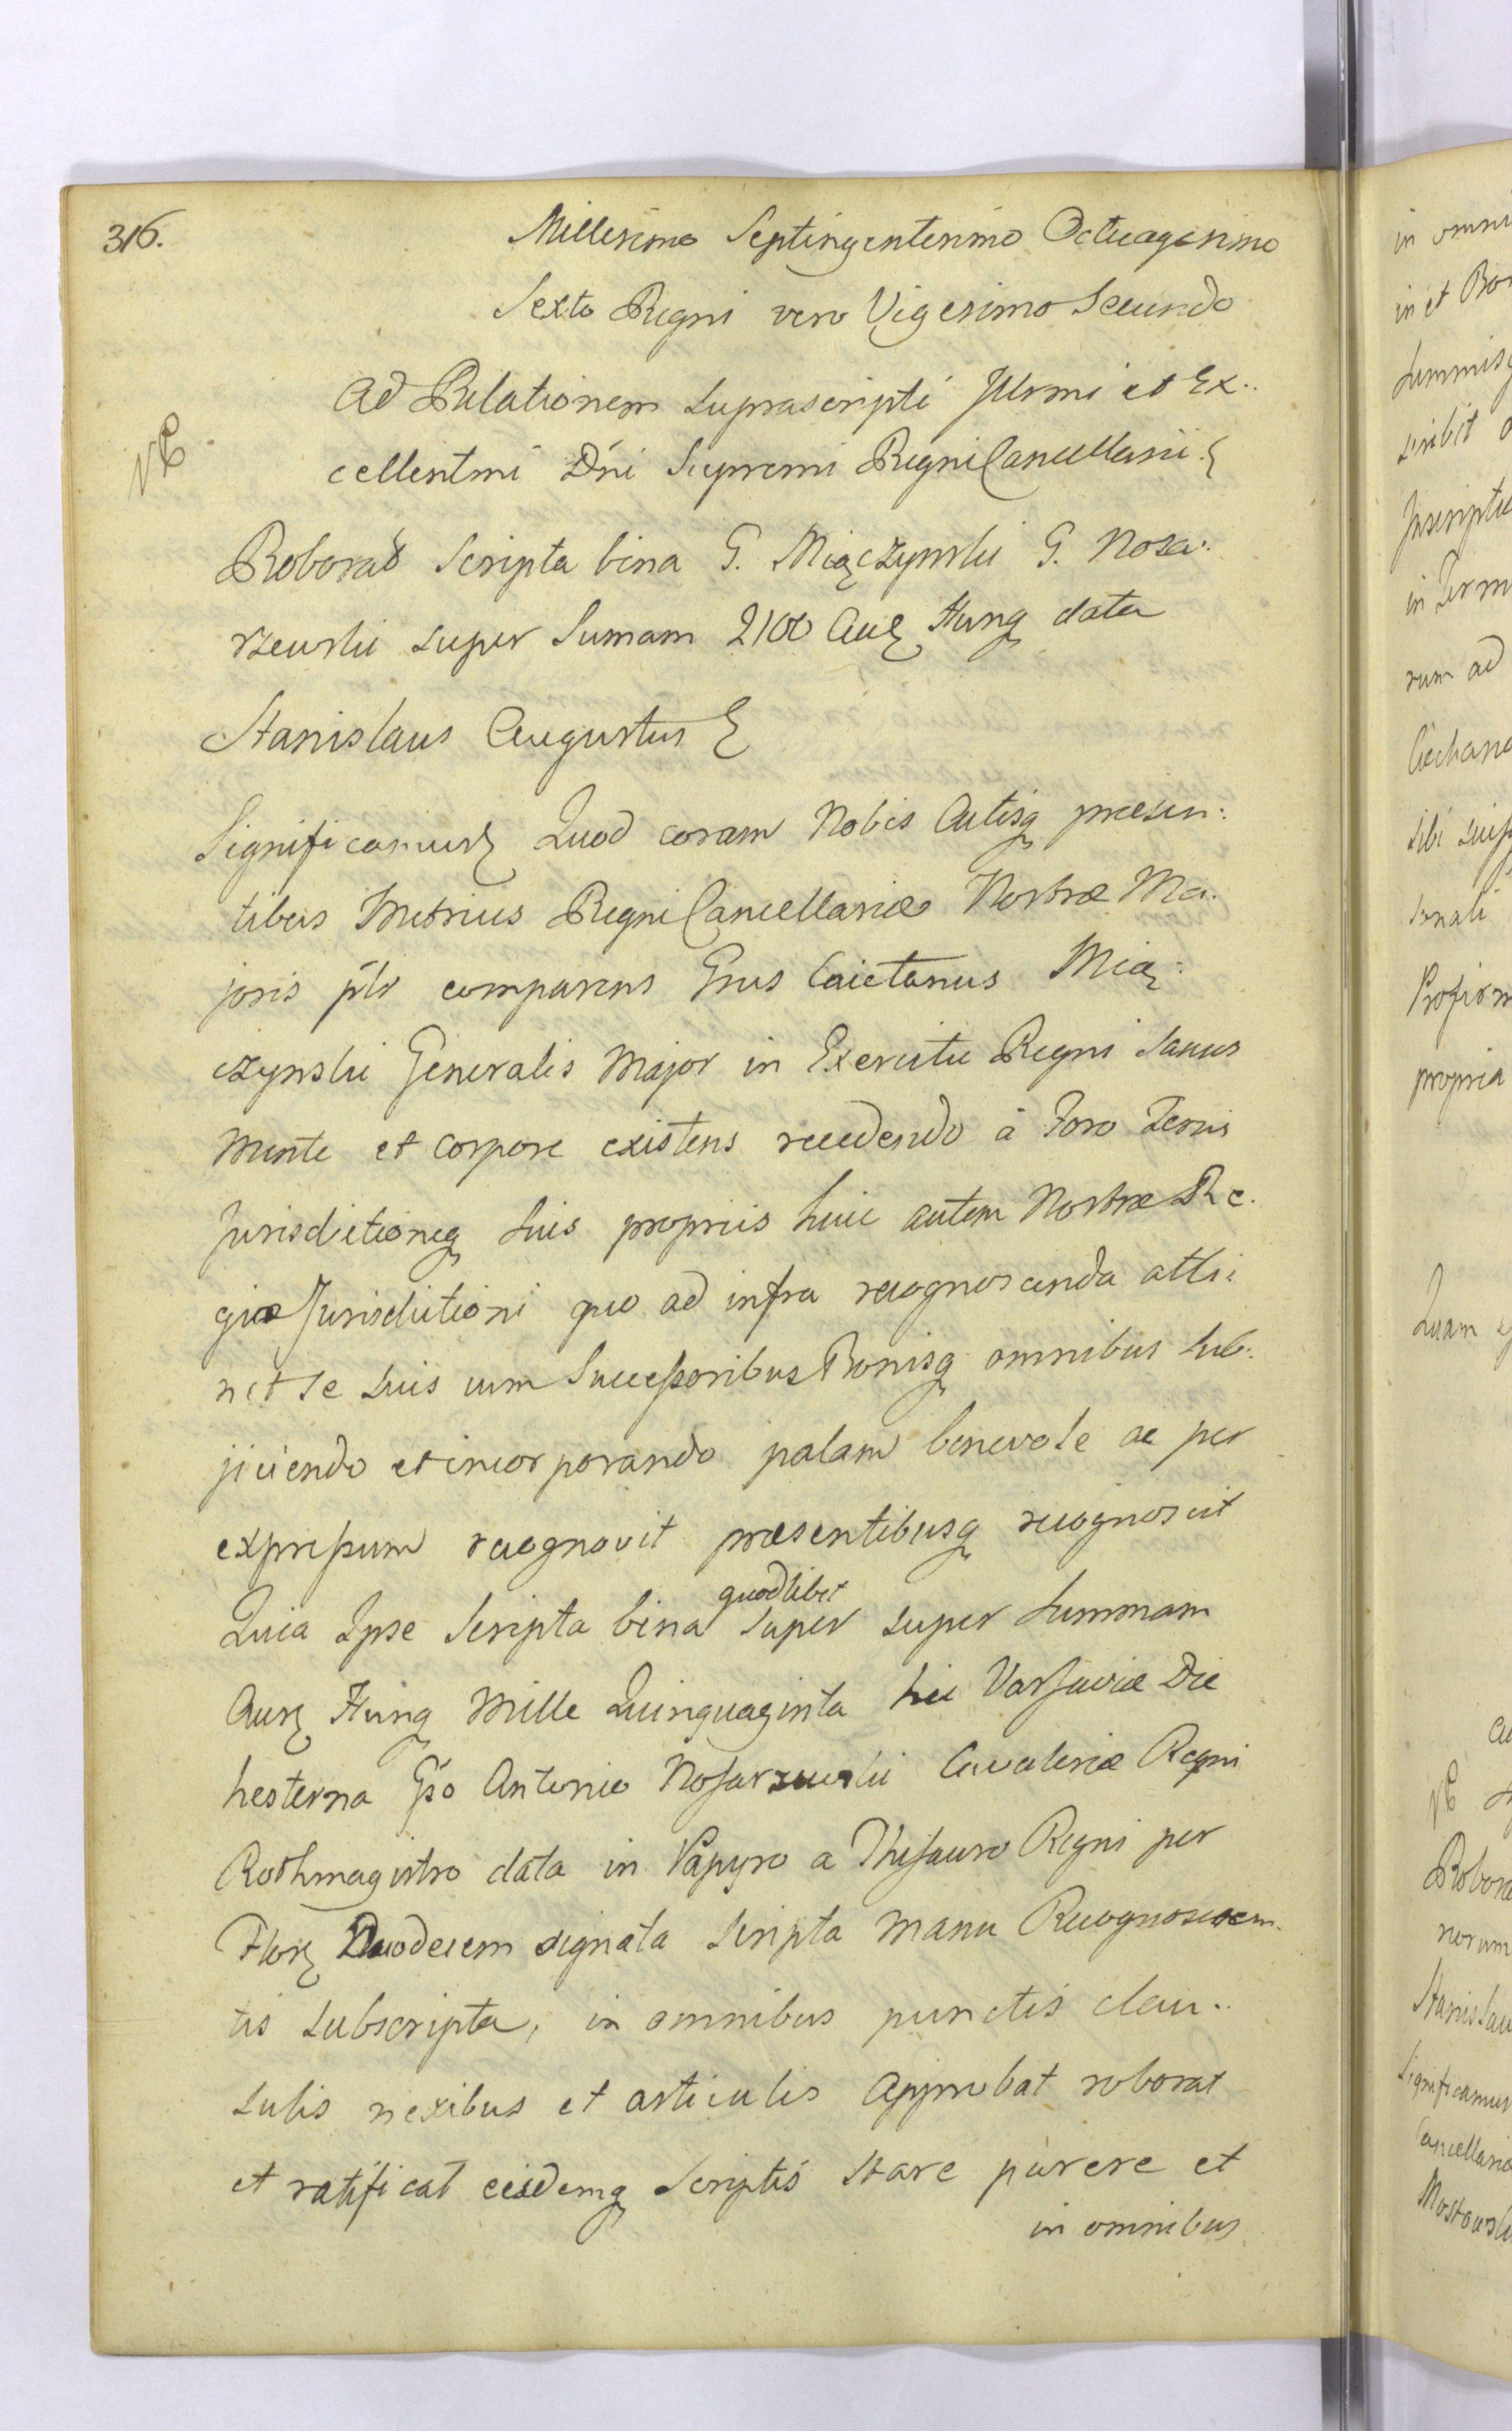 316.
Millesimo Septingentesimo Octuagesimo
Sexto Regni vero Vigesimo Secundo
Ad Relationem suprascripti Illrmi et Ex..
cellentmi Dni Supremi Regni Cancellarii.
Roborat Scripta bina G. Miączynski G. Nosa:
rzewski super Sumam 2100 Aur Hung data
Stanislaus Augustus
Significamus Quod coram Nobis Actisq præsen:
tibus Metrices Regni Cancellariæ Nostræ Ma.
joris plr comparens Gnus Caietanus Mią:
czynski Generalis Major in Exercitu Regni Sanus
Mente et Corpore existens recedendo à Foro Terris
Jurisdictioneq suis propriis huic autem Nostræ Re.
giæ Jurisdictioni quo ad infra recognoscenda atti:
net se suis cum Successoribus Bonisq omnibus sub.
jiciendo et incorporando palam benevole ac per
expressum recognovit præsentibusq recognoscit
Quia Ipse Scripta bina quodlibet super super Summam
Aur Hung Mille Quinquaginta hic Varsaviæ Die
hesterna Gso Antonio Nosarzewski Cavaleriæ Regni
Rothmagistro data in Papyro a Thesauro Regni per
Flor Duodecem signata scripta manu Recognoscen.
tis subscripta, in omnibus punctis clau..
sulis nexibus et articulis approbat roborat
et ratificat eisdemq Scriptis stare parere et
in omnibus
in omni
in et Bon
summisq
scribit
Inscriptio
in Term
rum ad
Ciechano
sibi
sonali
propria
Quam
Robora
norum
Stanislau
Significamus
Cancellariæ
Mostowski